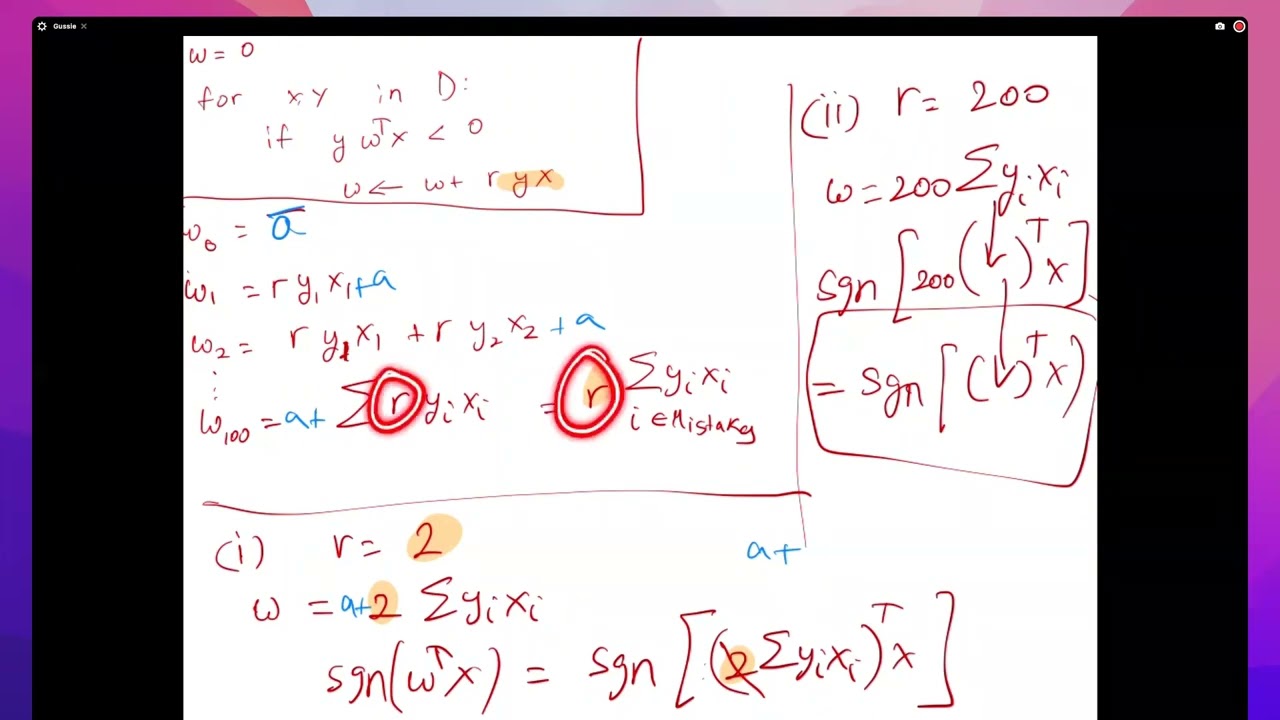 Gussie
w = 0
for x,y in D:
if y wᵀx < 0
w ← w + r y x
w₀ = a
w₁ = r y₁ x₁ + a
w₂ = r y₁ x₁ + r y₂ x₂ + a
⋮
w₁₀₀ = a + Σ r yᵢ xᵢ = r Σ yᵢ xᵢ
i ∈ Mistakes
(i) r = 2
a+
w = a+2 Σ yᵢ xᵢ
sgn(wᵀx) = sgn [(2 Σ yᵢ xᵢ)ᵀ x]
(ii) r = 200
w = 200 Σ yᵢ xᵢ
sgn [200 ( )ᵀ x]
= sgn [( )ᵀ x)